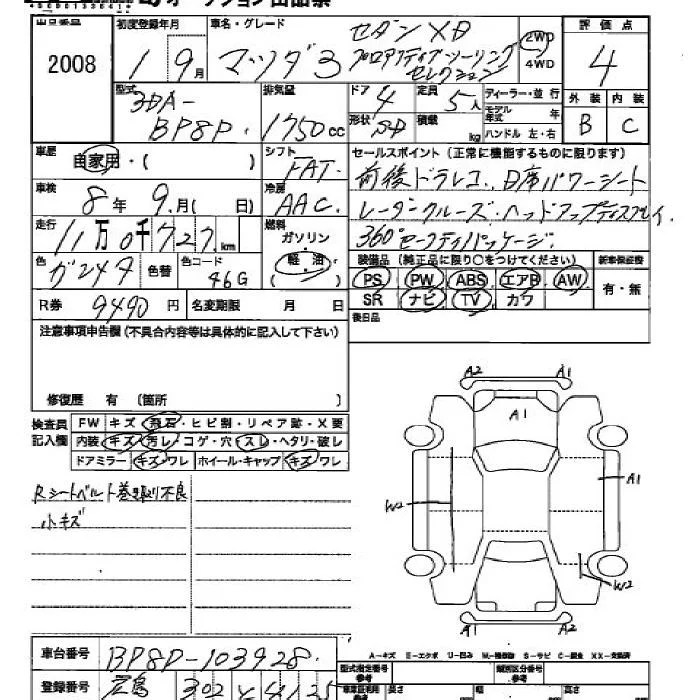 オークション出品票
出品番号 2008
初度登録年月 1 9月
車名・グレード マツダ3 セダン XD プロアクティブツーリングセレクション
2WD 4WD
評価点 4
型式 3DA-BP8P
排気量 1750cc
ドア 4
定員 5人
形状 SD
積載 kg
ディーラー・並行
モデル年式 年
ハンドル 左・右
外装 B
内装 C
車歴 自家用・( )
シフト FAT
セールスポイント(正常に機能するものに限ります)
前後ドラレコ、D席パワーシート
レーダークルーズ・ヘッドアップディスプレイ、
360°セーフティパッケージ
車検 8年 9月( 日)
冷房 AAC
走行 11万0千727km
燃料 ガソリン 軽・油
装備品(純正品に限り○をつけてください)
新車保証書 有・無
色 ガンメタ
色替
色コード 46G
PS PW ABS エアB AW
SR ナビ TV カワ
R券 9490円
名変期限 月 日
後日品
注意事項申告欄(不具合内容等は具体的に記入して下さい)
修復歴 有(箇所 )
検査員記入欄
FW キズ・飛石・ヒビ割・リペア跡・X要
内装 キズ・汚レ・コゲ・穴・スレ・ヘタリ・破レ
ドアミラー キズ・ワレ ホイール・キャップ キズ・ワレ
Rシートベルト巻き取り不良
小キズ
A2 A1
A1
A1
W2
W2
A1 A2
A-キズ E-エクボ U-凹ミ W-補修跡 S-サビ C-腐食 XX-交換済
車台番号 BP8P-103928
型式指定番号
類別区分番号
登録番号 広島 302
長さ
幅
高さ